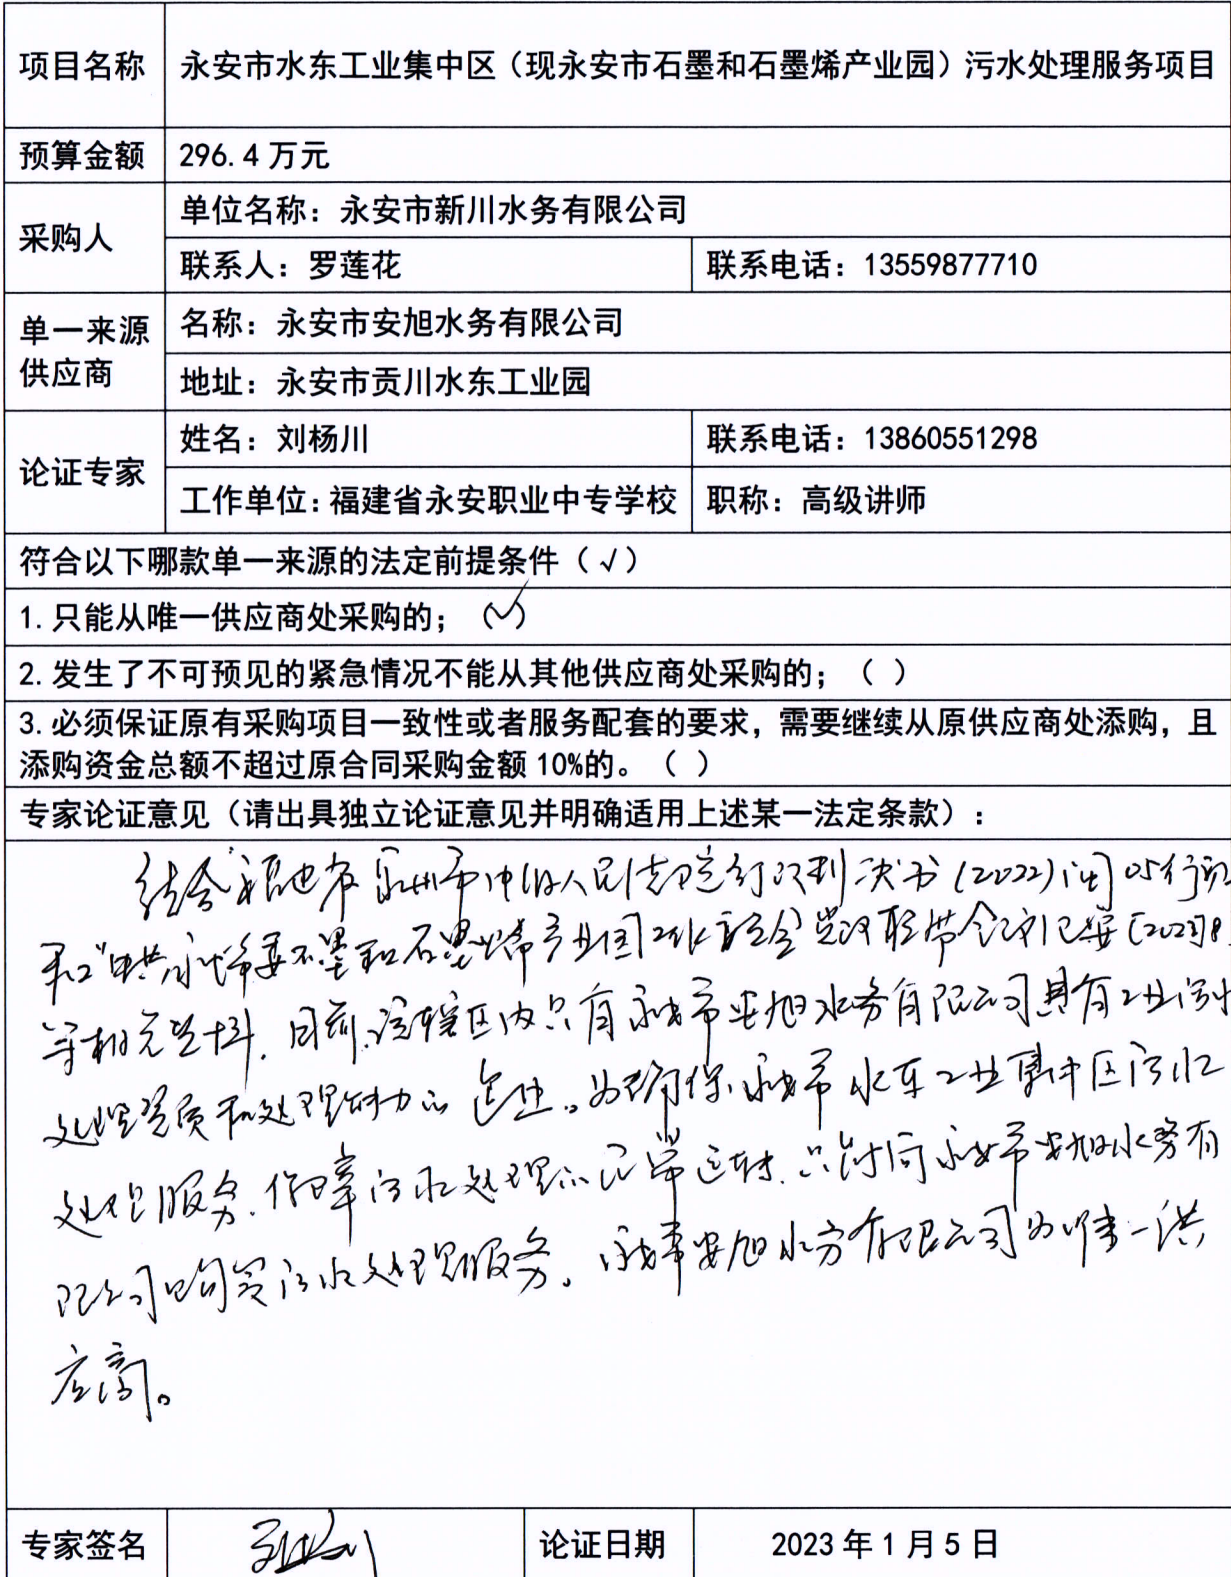 项目名称 永安市水东工业集中区（现永安市石墨和石墨烯产业园）污水处理服务项目
预算金额 296.4万元
采购人 单位名称：永安市新川水务有限公司
联系人：罗莲花 联系电话：13559877710
单一来源供应商 名称：永安市安旭水务有限公司
地址：永安市贡川水东工业园
论证专家 姓名：刘杨川 联系电话：13860551298
工作单位：福建省永安职业中专学校 职称：高级讲师
符合以下哪款单一来源的法定前提条件（√）
1.只能从唯一供应商处采购的；（√）
2.发生了不可预见的紧急情况不能从其他供应商处采购的；（ ）
3.必须保证原有采购项目一致性或者服务配套的要求，需要继续从原供应商处添购，且
添购资金总额不超过原合同采购金额10%的。（ ）
专家论证意见（请出具独立论证意见并明确适用上述某一法定条款）：
结合"福建省泉州市中级人民法院行政判决书(2022)闽05行
和"中共永安市委石墨和石墨烯产业园工委会党政联席会议纪要[2023]8
等相关资料，目前，该辖区内只有永安市安旭水务有限公司具有工业污水
处理资质和处理能力的企业。为确保永安市水东工业集中区污水
处理服务，保障污水处理的正常运转，只能向永安市安旭水务有
限公司购买污水处理服务。永安市安旭水务有限公司为唯一供
应商。
专家签名 刘杨川 论证日期 2023年1月5日